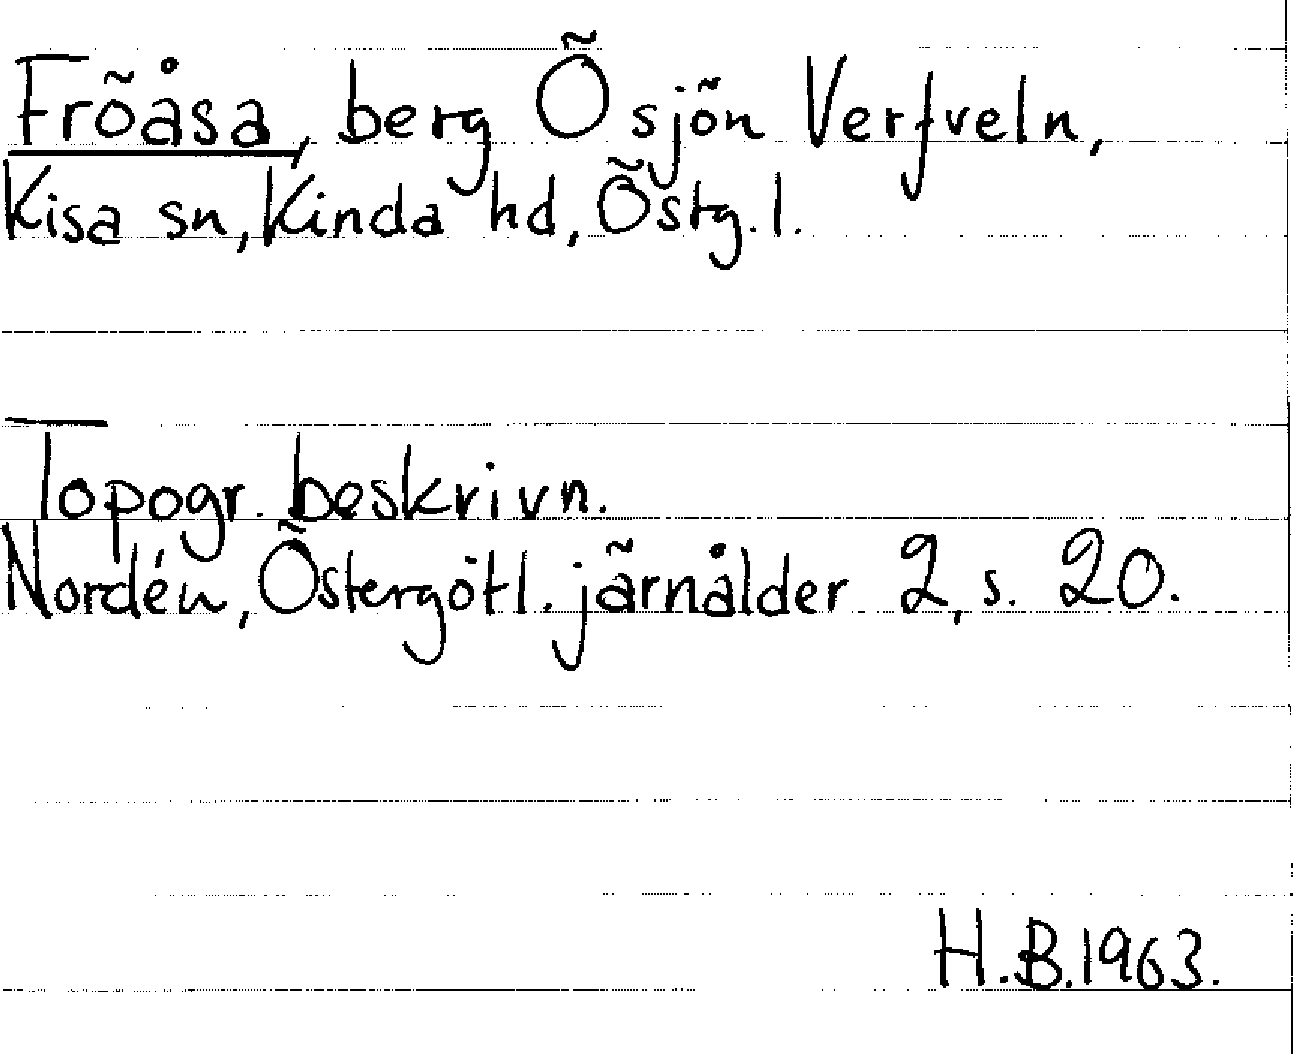 Fröåsa, berg Ö sjön Verfveln,
Kisa sn, Kinda hd, Östg. l.
Topogr. beskrivn.
Nordén, Östergötl. järnålder 2, s. 20.
H.B. 1963.